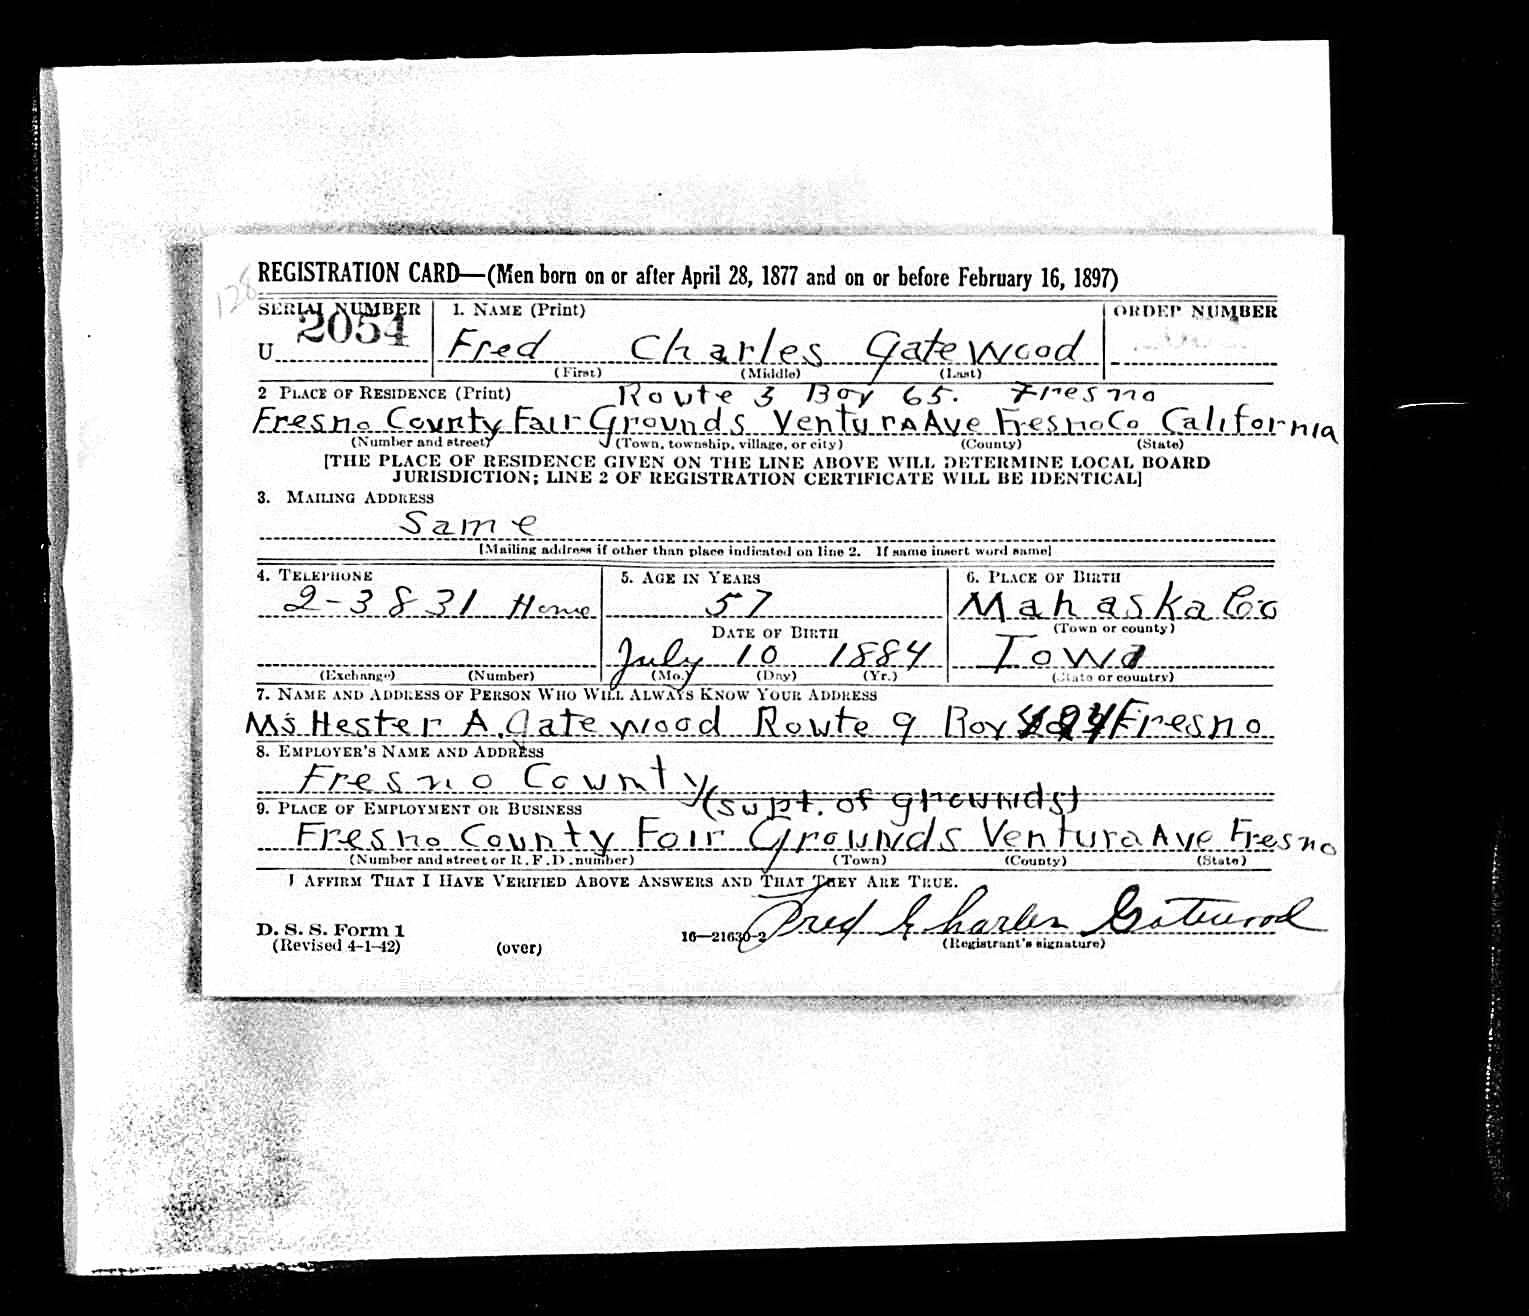 128
REGISTRATION CARD—(Men born on or after April 28, 1877 and on or before February 16, 1897)
SERIAL NUMBER 1. NAME (Print) ORDER NUMBER
U 2054 Fred Charles Gatewood
(First) (Middle) (Last)
2 PLACE OF RESIDENCE (Print) Route 3 Box 65. Fresno
Fresno County Fair Grounds Ventura Ave Fresno Co California
(Number and street) (Town, township, village, or city) (County) (State)
[THE PLACE OF RESIDENCE GIVEN ON THE LINE ABOVE WILL DETERMINE LOCAL BOARD
JURISDICTION; LINE 2 OF REGISTRATION CERTIFICATE WILL BE IDENTICAL]
3. MAILING ADDRESS
Same
[Mailing address if other than place indicated on line 2. If same insert word same]
4. TELEPHONE 5. AGE IN YEARS 6. PLACE OF BIRTH
2-3831 Home 57 Mahaska Co
DATE OF BIRTH (Town or county)
July 10 1884 Iowa
(Exchange) (Number) (Mo.) (Day) (Yr.) (State or country)
7. NAME AND ADDRESS OF PERSON WHO WILL ALWAYS KNOW YOUR ADDRESS
Ms Hester A. Gatewood Route 9 Box Fresno
8. EMPLOYER'S NAME AND ADDRESS
Fresno County
(supt. of grounds)
9. PLACE OF EMPLOYMENT OR BUSINESS
Fresno County Fair Grounds Ventura Ave Fresno
(Number and street or R. F. D. number) (Town) (County) (State)
I AFFIRM THAT I HAVE VERIFIED ABOVE ANSWERS AND THAT THEY ARE TRUE.
Fred Charles Gatewood
D. S. S. Form 1
(Revised 4-1-42) (over) 16—21630-2 (Registrant's signature)